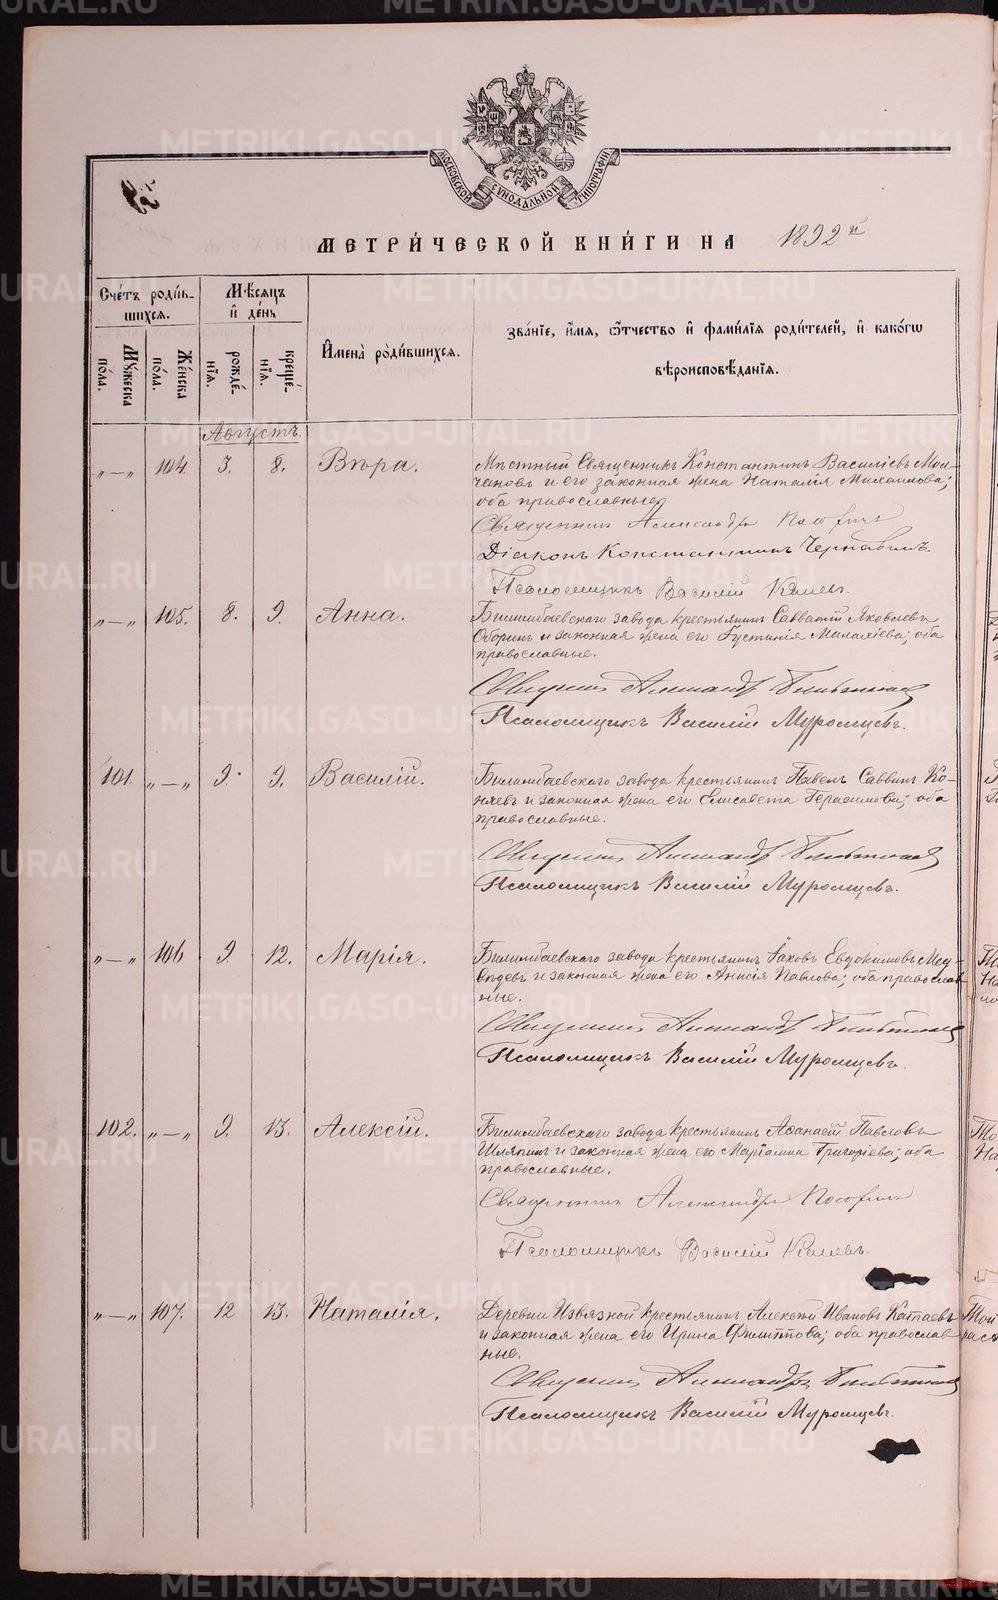 МОСКОВСКОЙ СѴНОДАЛЬНОЙ ТИПОГРАФІИ
МЕТРИ́ЧЕСКОЙ КНИ́ГИ НА 1892 й
Сче́тъ роди́вшихся.
Мѣсяцъ и҆ де́нь
И҆мена̀ роди́вшихся.
зва́нїе, и҆́мѧ, ѻ҆́тчество и҆ фами́лїѧ роди́телей, и҆ како́гѡ вѣроисповѣ́данїѧ.
Мꙋ́жеска по́ла.
Же́нска по́ла.
рожде́нїѧ.
креще́нїѧ.
Августъ.
„—„ 104. 3. 8. Вѣра. Мѣстный Священникъ Константинъ Васильевъ Мол-
чановъ и его законная жена Наталія Михаилова;
оба православные
Священник Александръ
Діаконъ Константинъ Чернавинъ.
Псаломщикъ Василій
„—„ 105. 8. 9. Анна. Билимбаевскаго завода крестьянинъ Савватій Яковлевъ
Оборин и законная жена его Іустинія Малахіева; оба
православные.
Священник Александр
Псаломщикъ Василій Муромцевъ.
101. „—„ 9. 9. Василій. Билимбаевскаго завода крестьянинъ Павелъ Саввин Ко-
няевъ и законная жена его Елисавета Герасимова; оба
православные.
Священник Александр
Псаломщикъ Василій Муромцевъ.
„—„ 106 9 12. Марія. Билимбаевскаго завода крестьянинъ Іаковъ Евдокимовъ Мед-
вѣдевъ и законная жена его Анисія Павлова; оба православ-
ные.
Священник Александр
Псаломщикъ Василій Муромцевъ.
102. „—„ 9. 13. Алексій. Билимбаевскаго завода крестьянинъ Аѳанасій Павловъ
Шляпинъ и законная жена его Маріамна Григоріева; оба
православные.
Священникъ Александръ
Псаломщикъ Василій
„—„ 107. 12 13. Наталія. Деревни Извязной крестьянинъ Алексѣй Ивановъ Катаевъ
и законная жена его Ирина Филиппова; оба православ-
ные.
Священник Александръ
Псаломщикъ Василій Муромцевъ.
METRIKI.GASO-URAL.RU